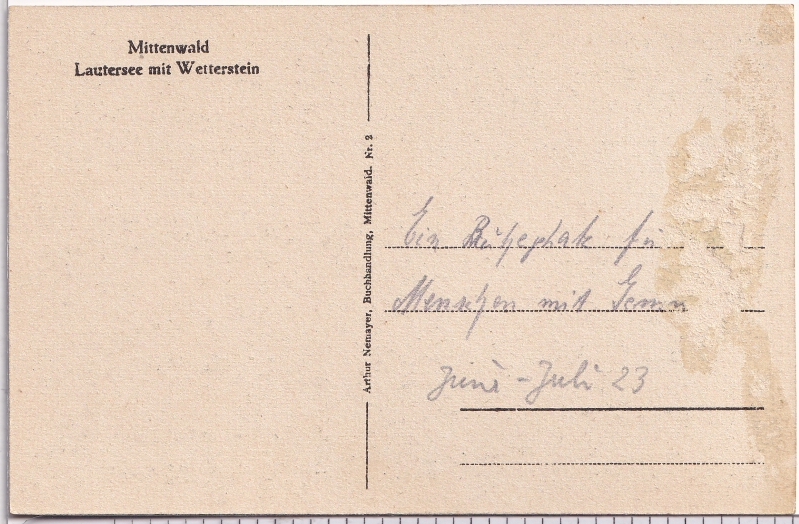 Mittenwald
Lautersee mit Wetterstein
Arthur Nemayer, Buchhandlung, Mittenwald. Nr. 2
Ein Ruheplatz für
Menschen mit Gemü
Juni - Juli 23